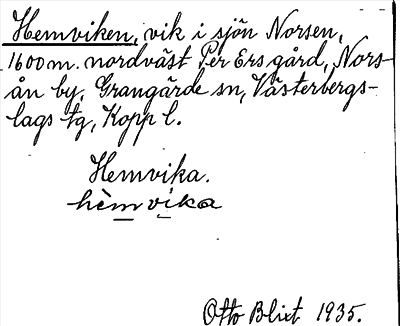 Hemviken, vik i sjön Norsen,
1600 m. nordväst Per Ers gård, Nors-
ån by, Grangärde sn, Västerbergs-
lags tg, Kopp l.
Hemvika.
hèmvika
Otto Blixt 1935.